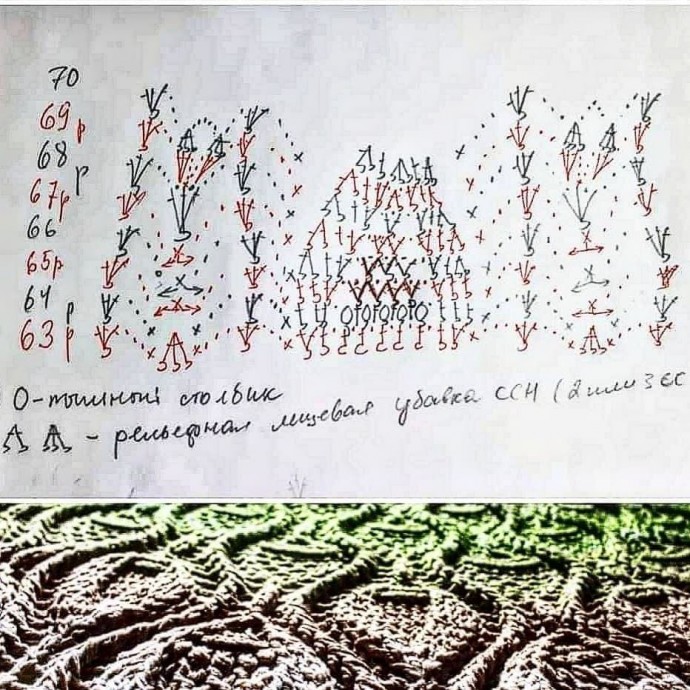 70
69р
68
67р
66
65р
64 р
63 р
О-пышный столбик
- рельефная лицевая убавка ССН (2 или 3 сс